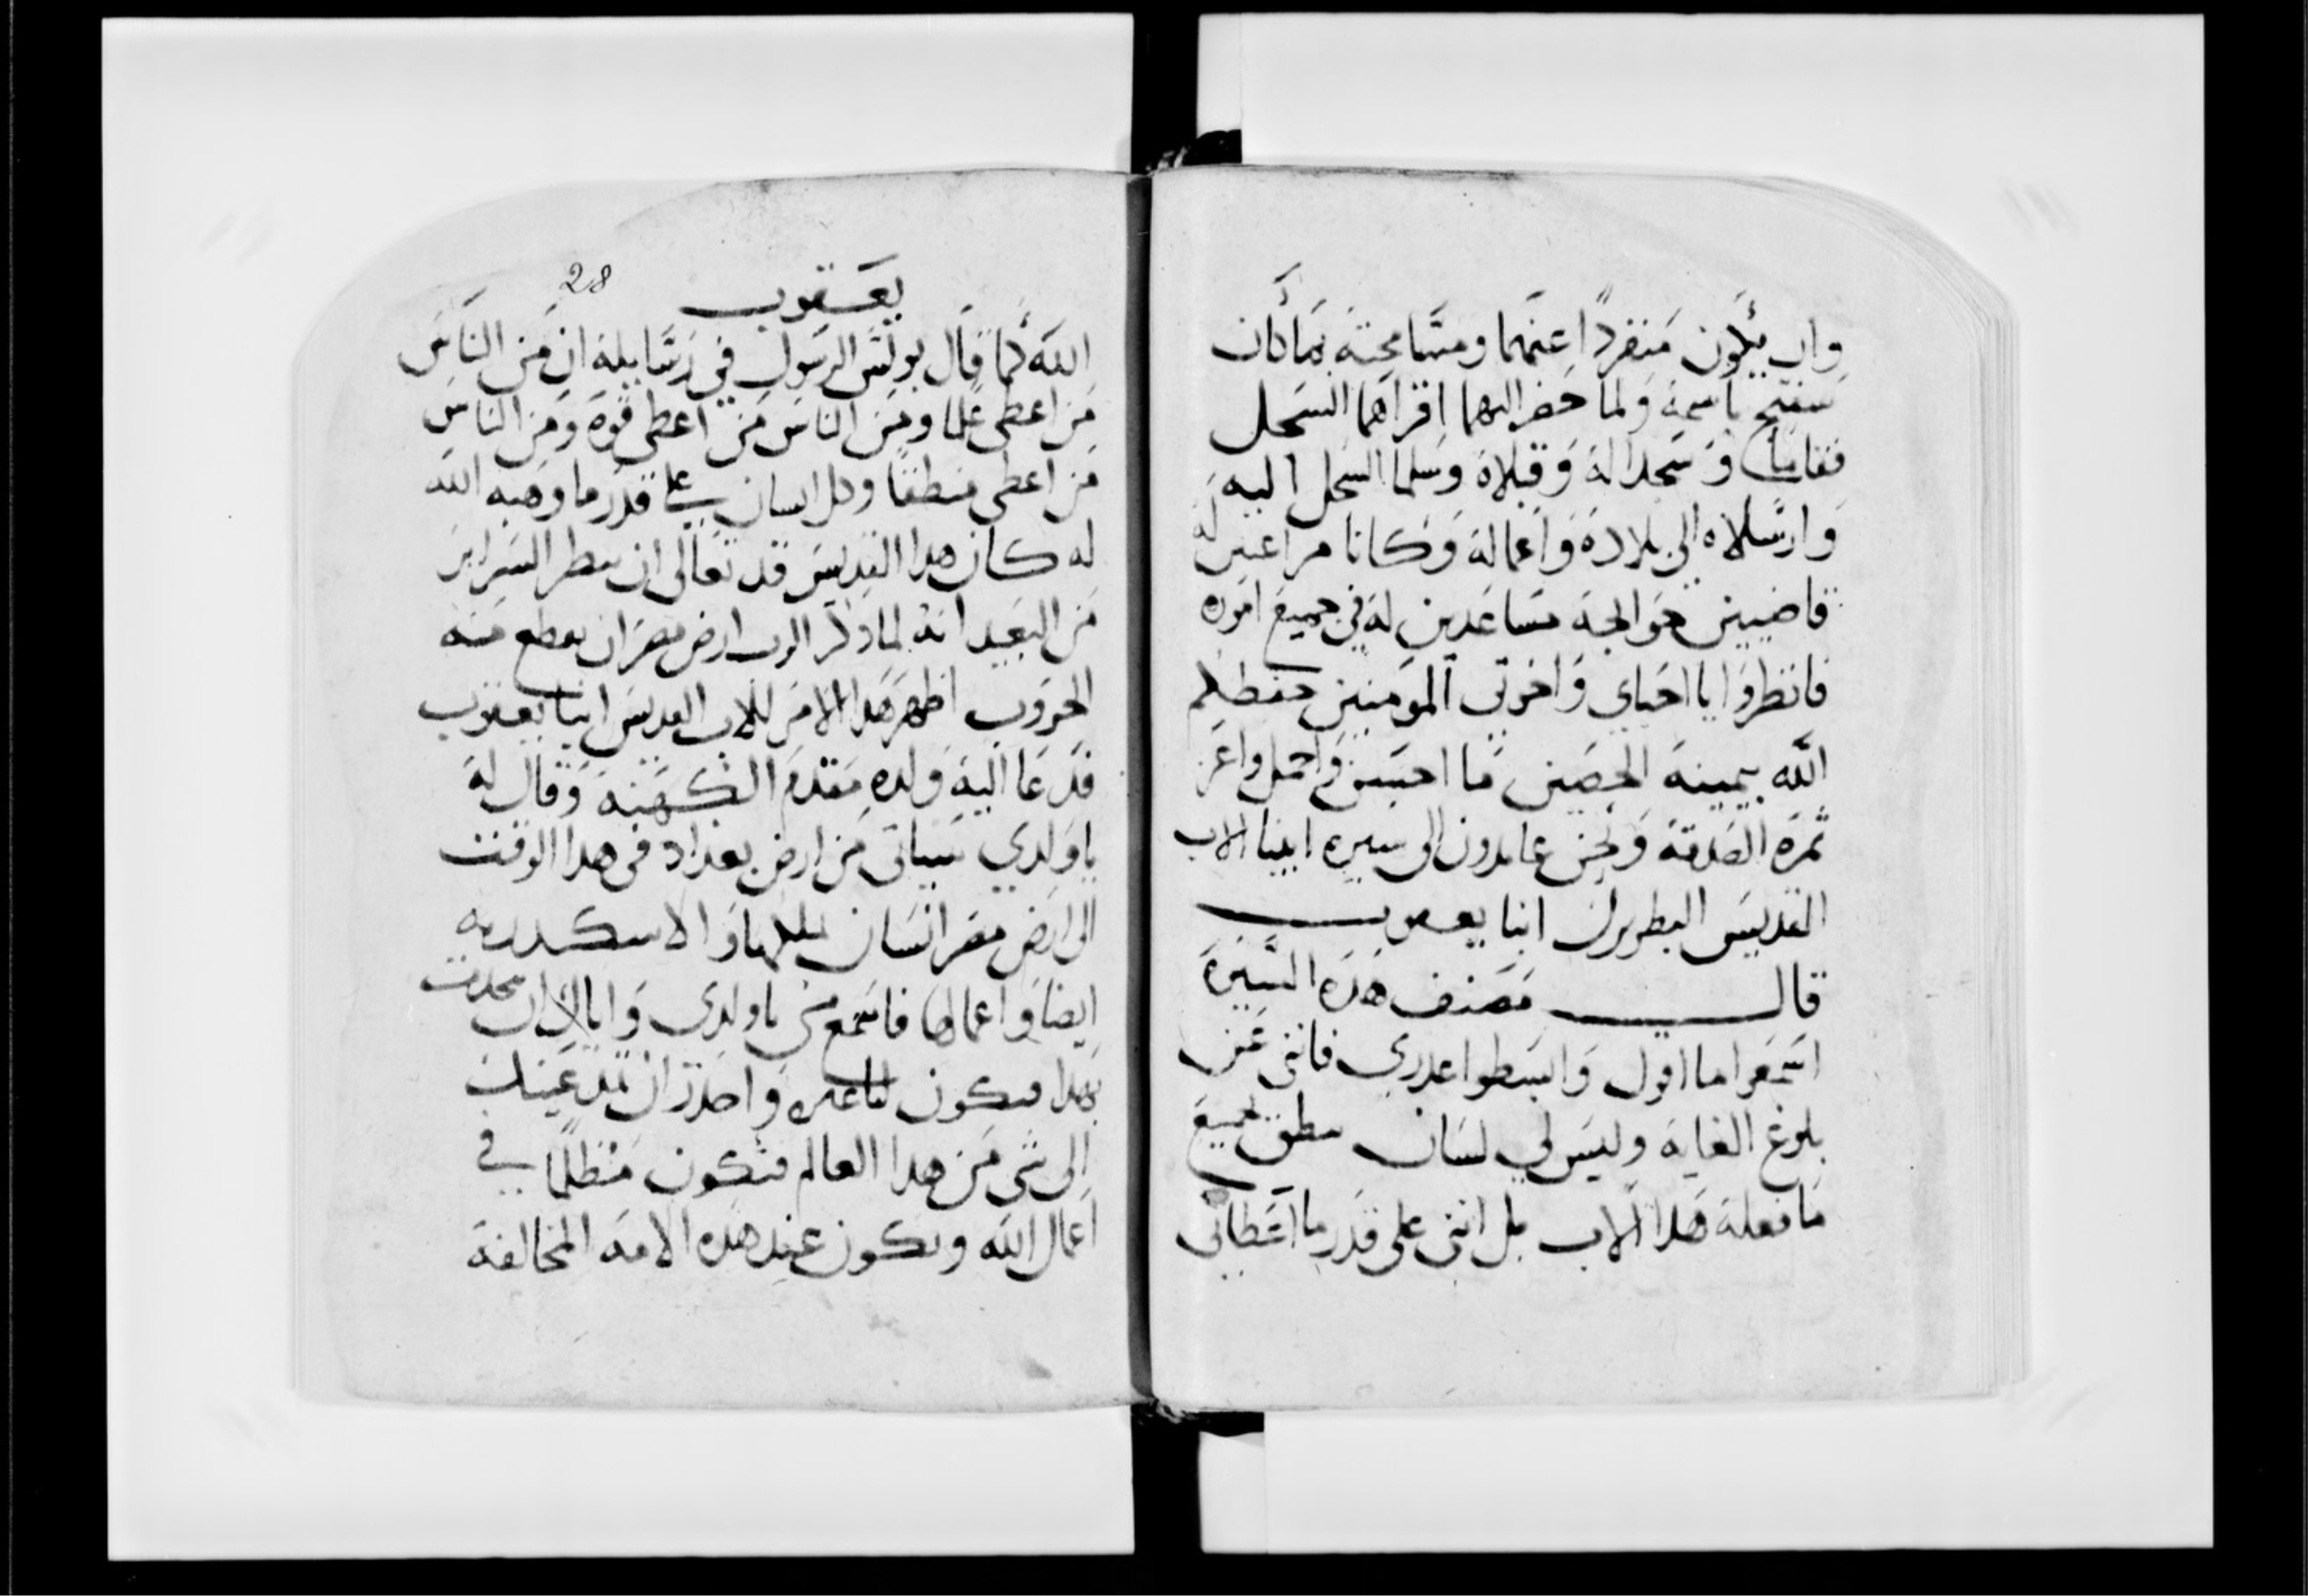 وان يكون منفردًا عنهما ومسامحته بما كان
سفتح باسمه ولما حضر اليهما اقراهما السجل
فقاما وسجدا له وقبلاه وسلما السجل اليه
وارسلاه الى بلاده واعماله وكانا مراعيين له
قاضيين حوايجه مساعدين له في جميع اموره
فانظروا يا احباي واخوتي المومنين حفظكم
الله بيمينه الحصين ما احسن واجمل واعز
ثمره الصدقه ونحن عايدون الى سيره ابينا الاب
القديس البطريرك انبا يعقوب
قال مصنف هذه السيرة
اسمعوا ما اقول وابسطوا عدري فانني عن
بلوغ الغايه وليس لي لسان ينطق بجميع
ما فعله هدا الاب بل انني على قدر ما اعطاني
28
يعقوب
الله كما قال بولس الرسول في رسايله ان من الناس
من اعطى علما ومن الناس من اعطى قوه ومن الناس
من اعطى منطقا وكل انسان على قدر ما وهبه الله
له كان هدا القديس قد تعالى ان ينظر السراير
من البعيد انه لما ذكر الرب ارض مصر ان يقطع منه
الحروب اظهر هدا الامر للاب القديس انبا يعقوب
فدعا اليه ولده مقدم الكهنه وقال له
يا ولدي سياتي من ارض بغداد في هدا الوقت
الى ارض مصر انسان يملكها والاسكندريه
ايضا واعمالها فاسمع مني يا ولدي واياك ان تتحدث
بهدا فيكون لنا عثره واحدر ان تمد عينيك
الى شي من هدا العالم فتكون منظلما في
اعمال الله وتكون عند هده الامه المخالفة